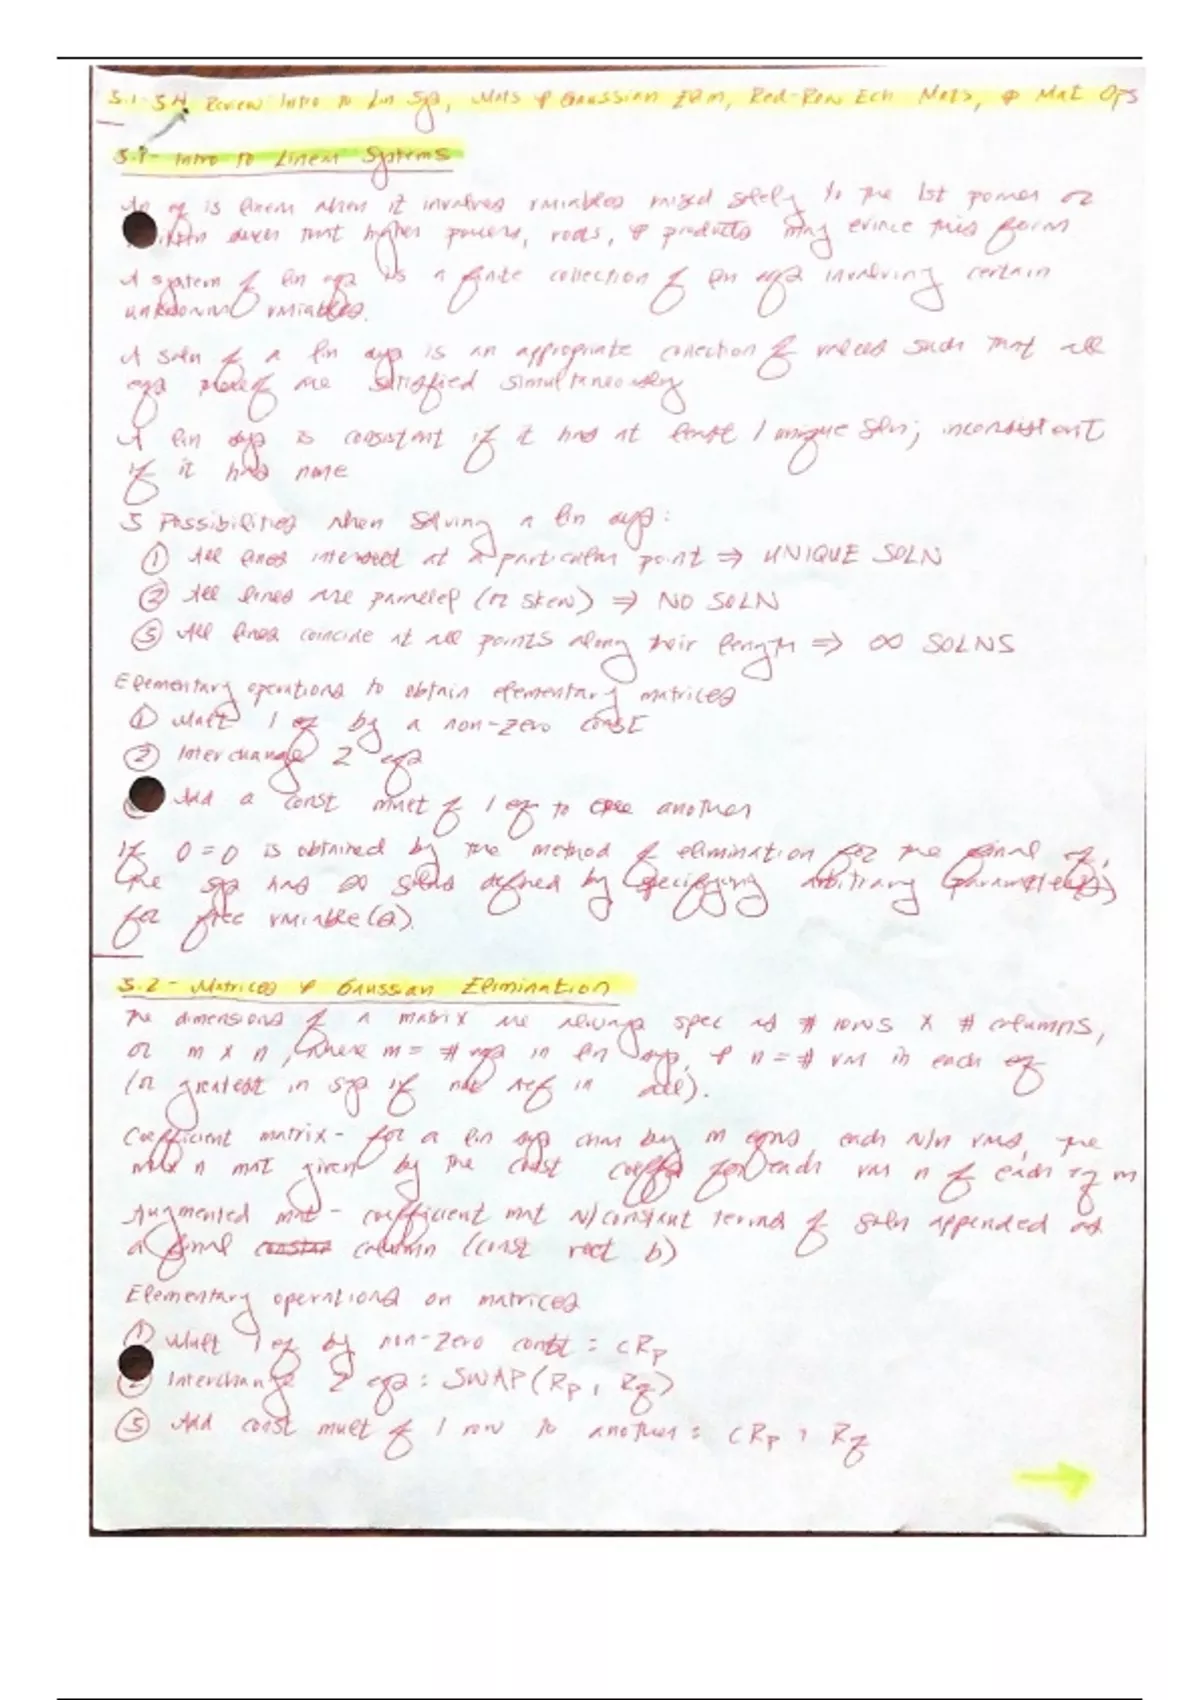 3.1-3.4 Review Intro to Lin Sys, Mats & Gaussian Elim, Red-Row Ech Mats, & Mat Ops
3.1- Intro to Linear Systems
An eq is linear when it involves variables raised solely to the 1st power or
such that higher powers, roots, & products may evince this form
A system of lin eqs is a finite collection of lin eqs involving certain
unknown variables.
A soln of a lin sys is an appropriate collection of values such that all
eqs thereof are satisfied simultaneously
A lin sys is consistent if it has at least 1 unique soln; inconsistent
if it has none
3 Possibilities when solving a lin sys:
① All lines intersect at a particular point ⇒ UNIQUE SOLN
② All lines are parallel (or skew) ⇒ NO SOLN
③ All lines coincide at all points along their length ⇒ ∞ SOLNS
Elementary operations to obtain elementary matrices
① Mult 1 eq by a non-zero const
② Interchange 2 eqs
Add a const mult of 1 eq to another
If 0=0 is obtained by the method of elimination for the final eq,
the sys has ∞ solns defined by specifying arbitrary parameter(s)
for free variable(s).
3.2 - Matrices & Gaussian Elimination
The dimensions of a matrix are always spec as # rows x # columns,
or m x n, where m = # eqs in lin sys, & n = # var in each eq
(or greatest in sys if not ref in all).
Coefficient matrix- for a lin sys char by m eqns, each w/n vars, the
m x n mat given by the const coeffs for each var n of each eq m
Augmented mat - coefficient mat w/constant terms of soln appended as
a final column (const vect b)
Elementary operations on matrices
① Mult 1 eq by non-zero const = cRp
② Interchange 2 eqs: SWAP(Rp, Rq)
③ Add const mult of 1 row to another: cRp + Rq